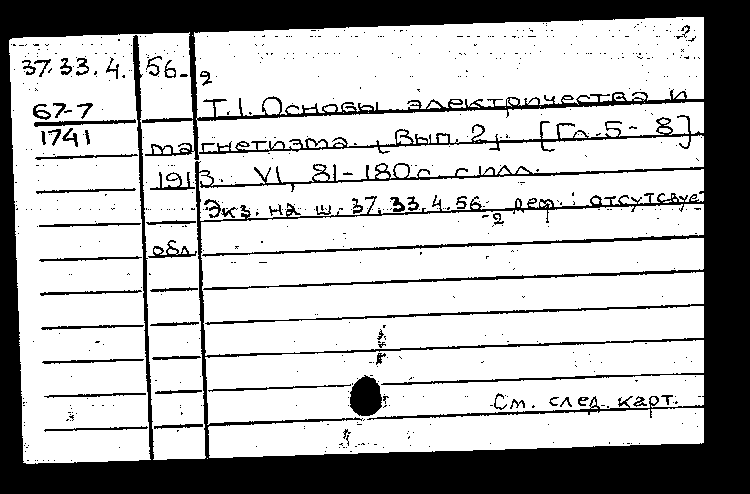 2
37.33.4. 56-2
67-7 Т.1. Основы электричества и
1741 магнетизма. Вып. 2. [Гл. 5-8].
1913. VI, 81-180 с. с илл.
Экз. на ш. 37.33.4.56-2 деф.: отсутствует
обл.
См. след. карт.